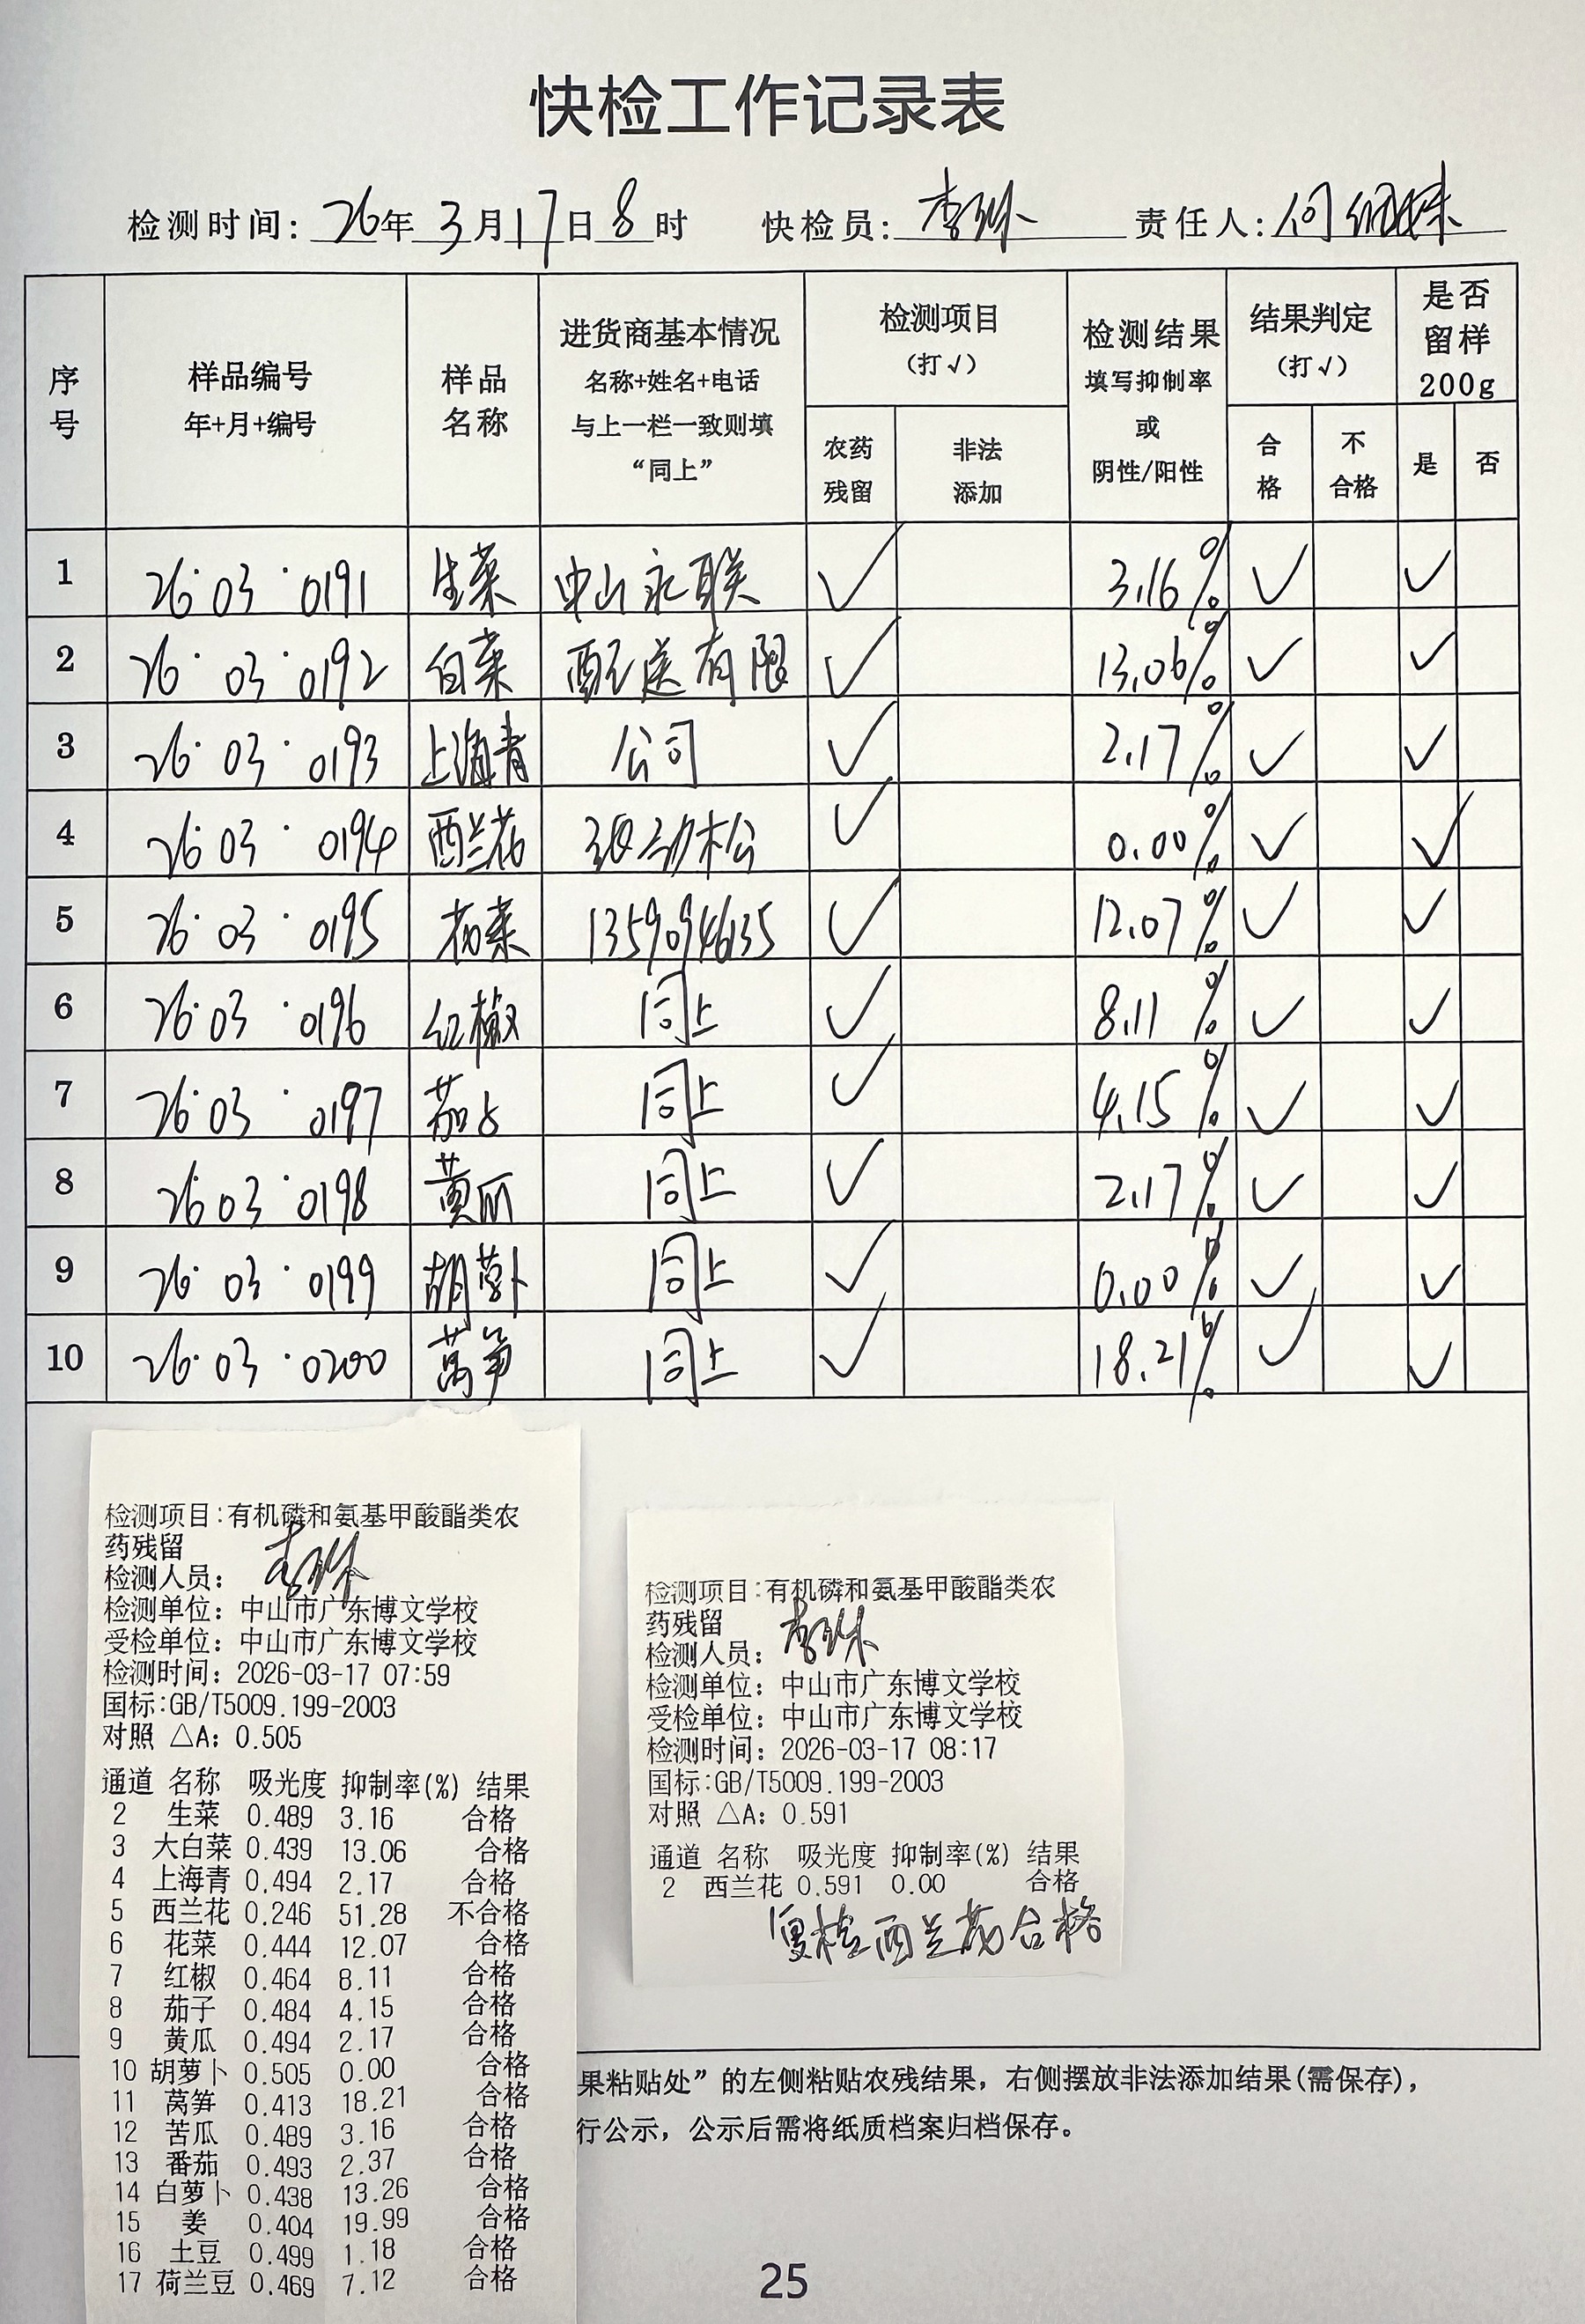 快检工作记录表
检测时间: 26年 3月17日8时 快检员: 李 责任人: 何
序号 样品编号 年+月+编号 样品名称 进货商基本情况 名称+姓名+电话 与上一栏一致则填“同上” 检测项目(打√) 农药残留 非法添加 检测结果 填写抑制率或阴性/阳性 结果判定(打√) 合格 不合格 是否留样200g 是 否
1 26·03·0191 生菜 中山永联 √ 3.16% √ √
2 26·03·0192 白菜 配送有限 √ 13.06% √ √
3 26·03·0193 上海青 公司 √ 2.17% √ √
4 26·03·0194 西兰花 松 √ 0.00% √ √
5 26·03·0195 菜 13590946135 √ 12.07% √ √
6 26·03·0196 红椒 同上 √ 8.11% √ √
7 26·03·0197 茄子 同上 √ 4.15% √ √
8 26·03·0198 黄瓜 同上 √ 2.17% √ √
9 26·03·0199 胡萝卜 同上 √ 0.00% √ √
10 26·03·0200 莴笋 同上 √ 18.21% √ √
检测项目:有机磷和氨基甲酸酯类农
药残留
检测人员: 李
检测单位: 中山市广东博文学校
受检单位: 中山市广东博文学校
检测时间: 2026-03-17 07:59
国标:GB/T5009.199-2003
对照 △A: 0.505
通道 名称 吸光度 抑制率(%) 结果
2 生菜 0.489 3.16 合格
3 大白菜 0.439 13.06 合格
4 上海青 0.494 2.17 合格
5 西兰花 0.246 51.28 不合格
6 花菜 0.444 12.07 合格
7 红椒 0.464 8.11 合格
8 茄子 0.484 4.15 合格
9 黄瓜 0.494 2.17 合格
10 胡萝卜 0.505 0.00 合格
11 莴笋 0.413 18.21 合格
12 苦瓜 0.489 3.16 合格
13 番茄 0.493 2.37 合格
14 白萝卜 0.438 13.26 合格
15 姜 0.404 19.99 合格
16 土豆 0.499 1.18 合格
17 荷兰豆 0.469 7.12 合格
检测项目:有机磷和氨基甲酸酯类农
药残留
检测人员: 李
检测单位: 中山市广东博文学校
受检单位: 中山市广东博文学校
检测时间: 2026-03-17 08:17
国标:GB/T5009.199-2003
对照 △A: 0.591
通道 名称 吸光度 抑制率(%) 结果
2 西兰花 0.591 0.00 合格
复检西兰花合格
果粘贴处”的左侧粘贴农残结果，右侧摆放非法添加结果(需保存)，
行公示，公示后需将纸质档案归档保存。
25